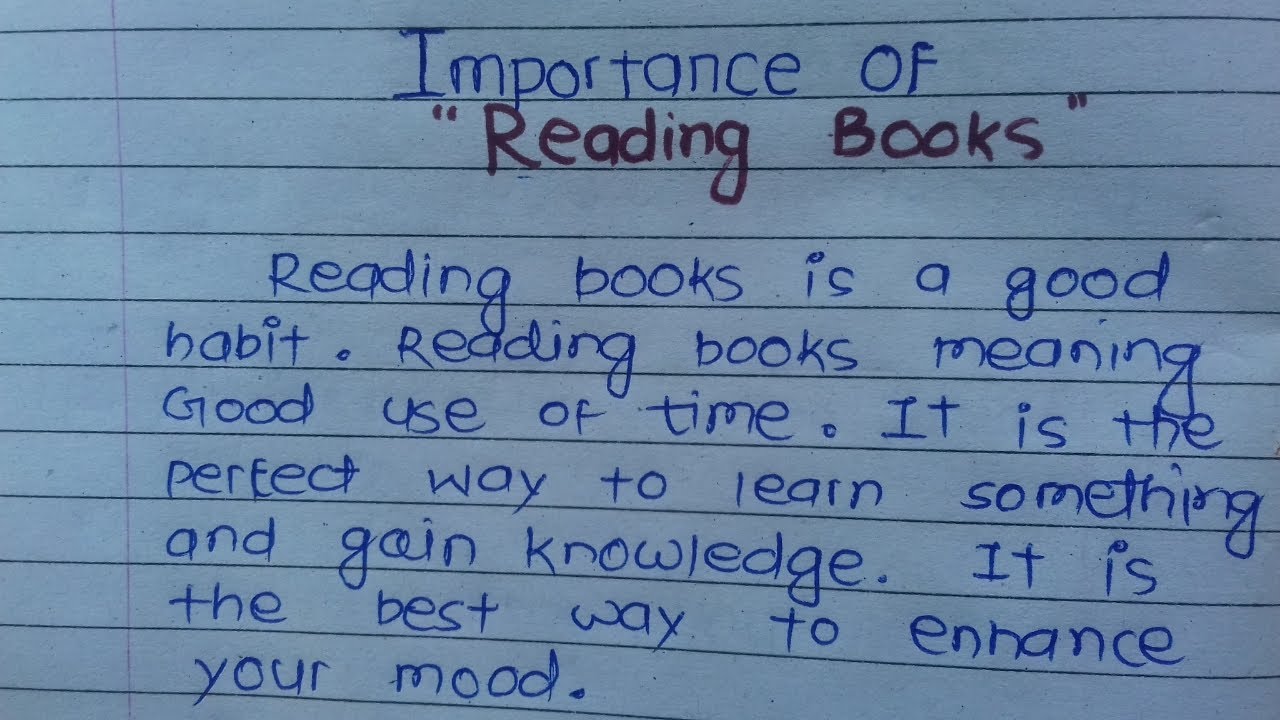 Importance OF
"Reading Books"
Reading books is a good
habit. Reading books meaning
Good use of time. It is the
perfect way to learn something
and gain knowledge. It is
the best way to enhance
your mood.